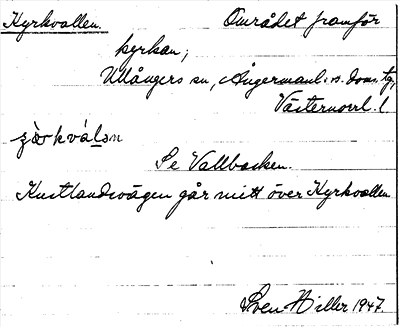 Kyrkvallen. Området framför
kyrkan;
Ullångers sn, Ångermanl. n. doms. tg,
Västernorrl. l
Se Vallbacken.
Kustlandsvägen går mitt över Kyrkvallen
Sven Hiller 1947.